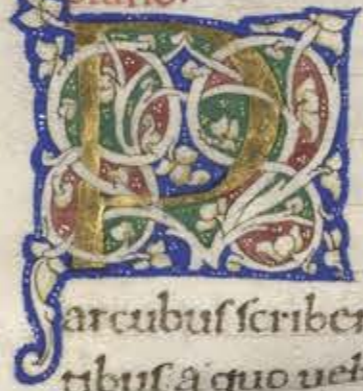 P
arcubuſ ſcriben
tibuſ a quo uel